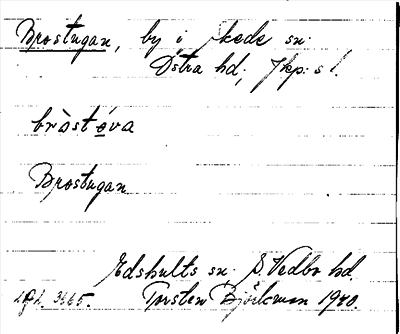 Brostugan, by i Skede sn.
Östra hd; Jkp: s l.
bròst óva
Brostugan
Edshults sn. S. Vedbo hd.
Torsten Björkman 1940.